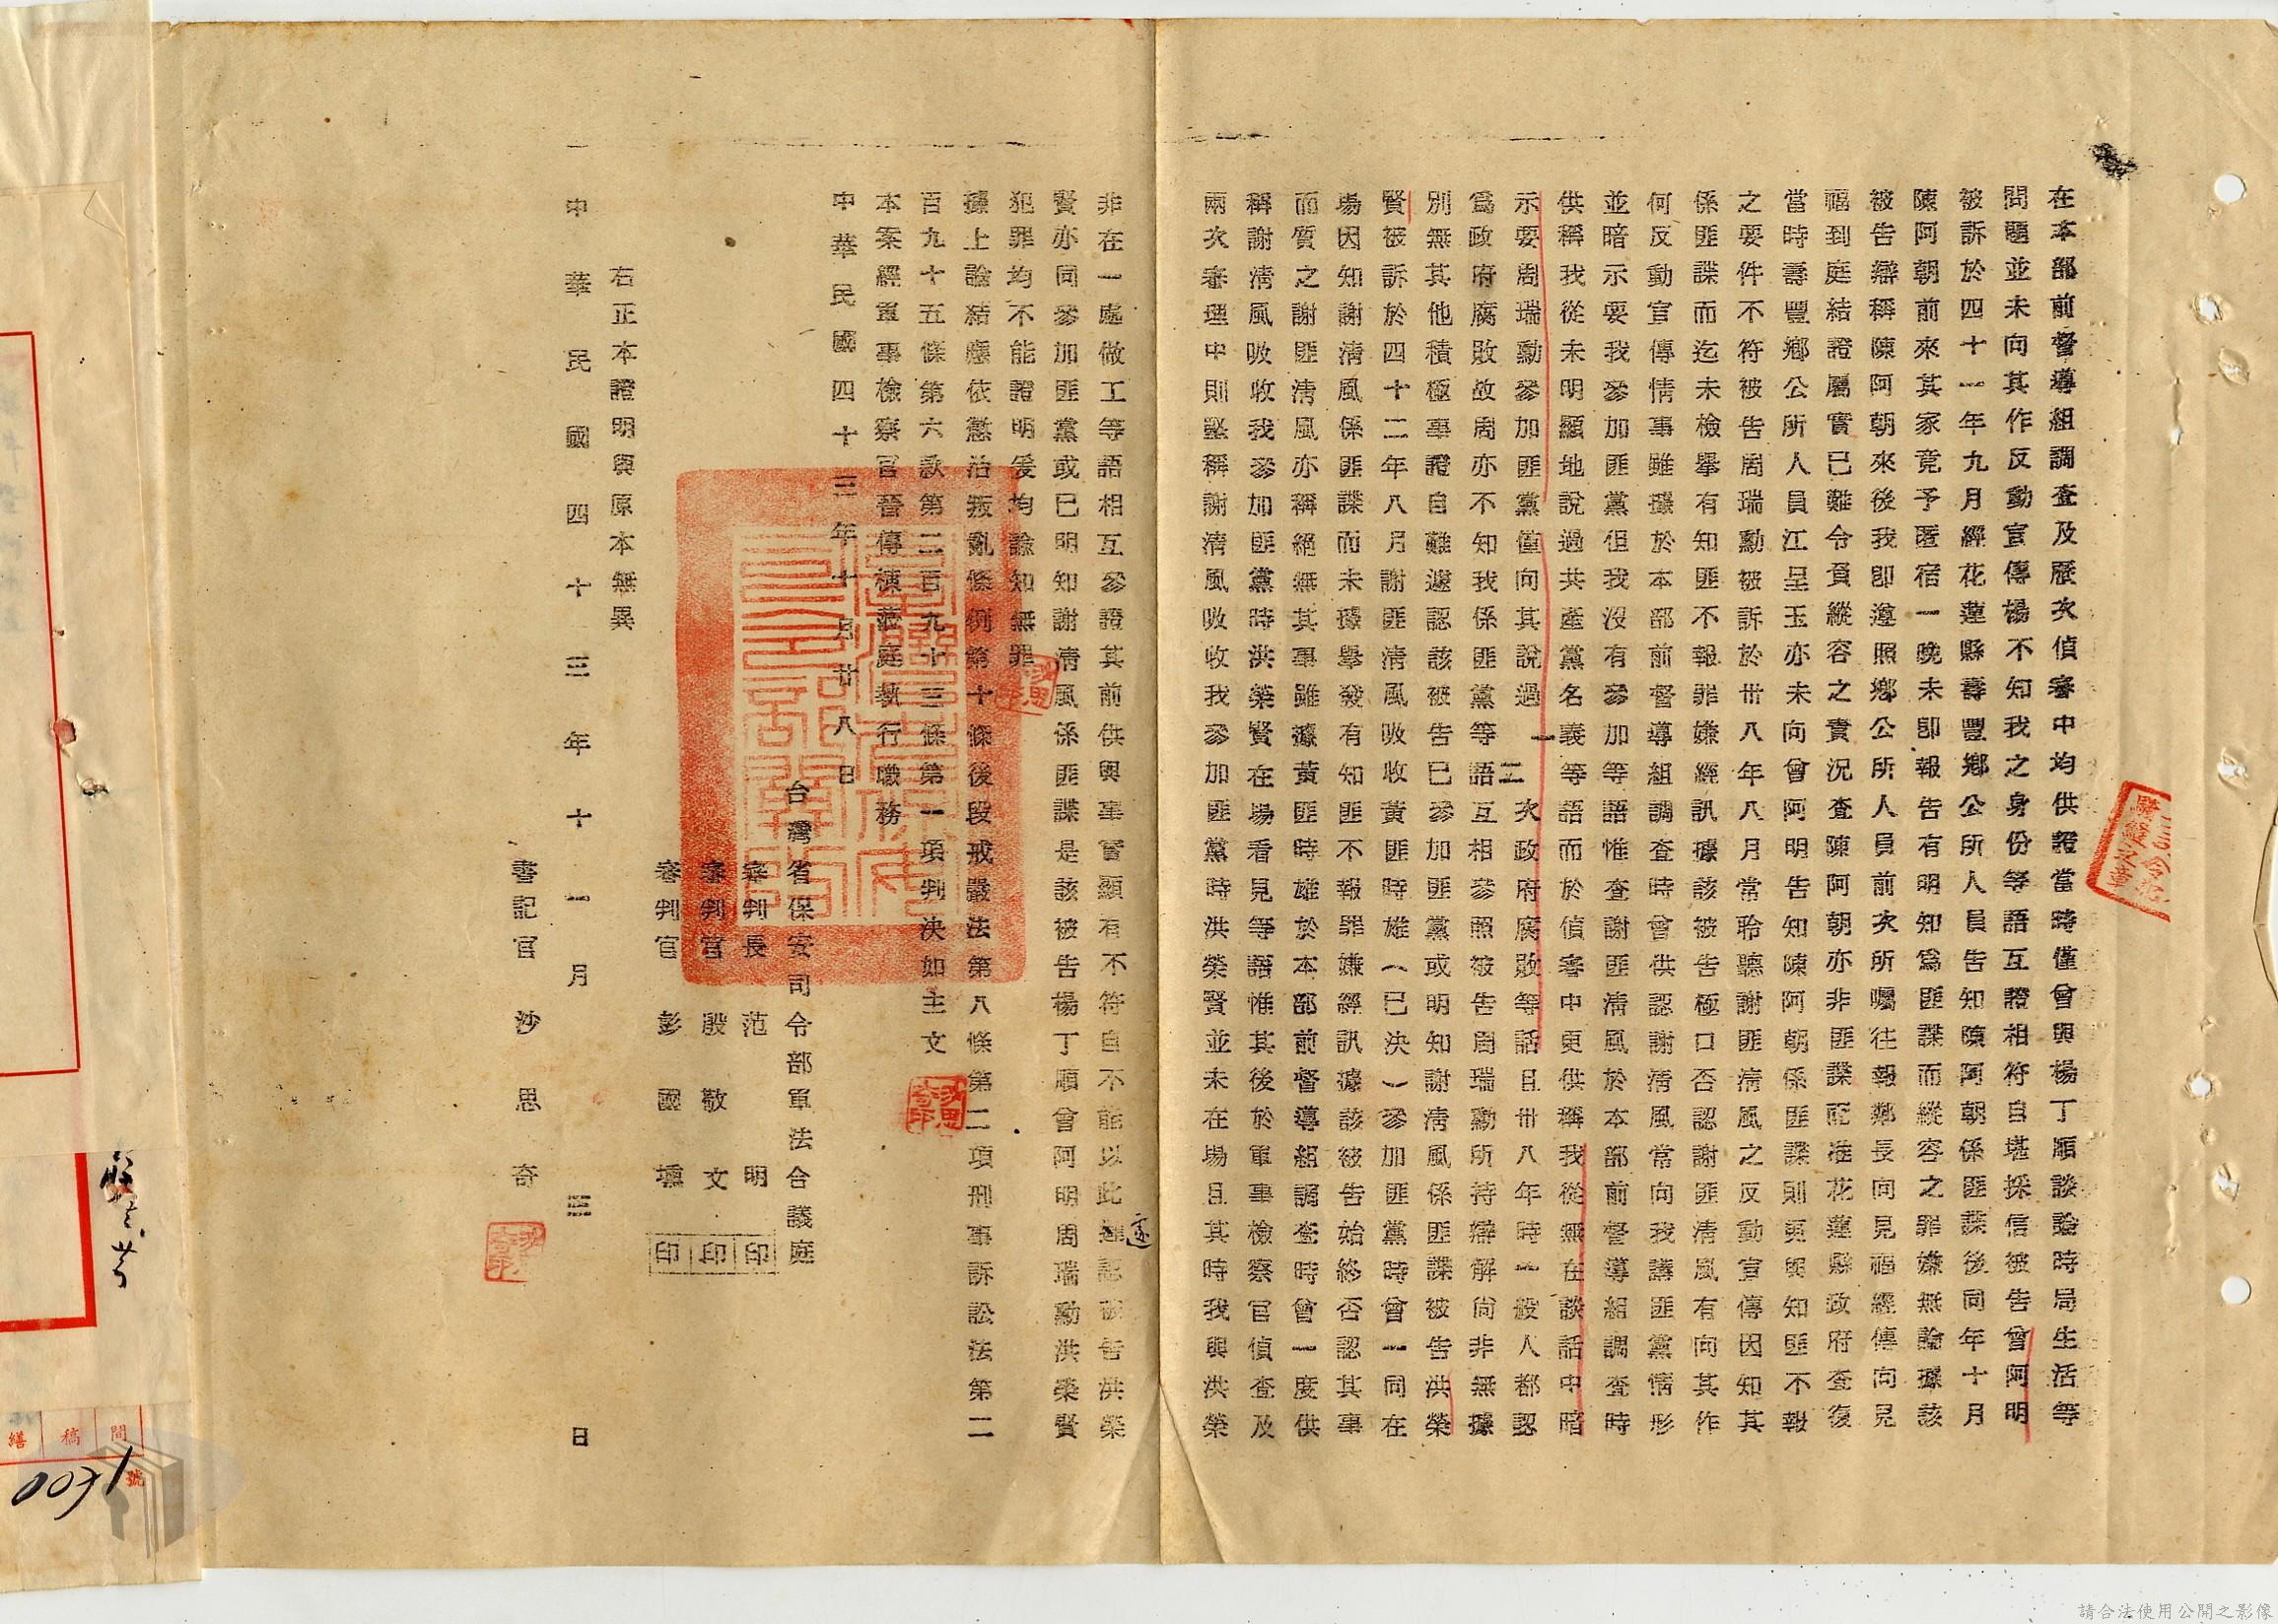 在本部前督導組調查及歷次偵審中均供證當時僅曾與楊丁順談論時局生活等
問題並未向其作反動宣傳楊不知我之身份等語互證相符自堪採信被告曾阿明
被訴於四十一年九月經花蓮縣壽豐鄉公所人員告知陳阿朝係匪諜後同年十月
陳阿朝前來其家竟予匿宿一晚未即報告有明知為匪諜而縱容之罪嫌無論據該
被告辯稱陳阿朝來後我即遵照鄉公所人員前次所囑往報鄉長向見福經傳向見
福到庭結證屬實已難令負縱容之責況查陳阿朝亦非匪諜配准花蓮縣政府查復
當時壽豐鄉公所人員江呈玉亦未向曾阿明告知陳阿朝係匪諜則更與知匪不報
之要件不符被告周瑞勳被訴於卅八年八月常聆聽謝匪清風之反動宣傳因知其
係匪諜而迄未檢舉有知匪不報罪嫌經訊據該被告極口否認謝匪清風有向其作
何反動宣傳情事雖據於本部前督導組調查時曾供認謝清風常向我講匪黨情形
並暗示要我參加匪黨但我沒有參加等語惟查謝匪清風於本部前督導組調查時
供稱我從未明顯地說過共產黨名義等語而於偵審中更供稱我從無在談話中暗
示要周瑞勳參加匪黨僅向其說過一二次政府腐敗等話且卅八年時一般人都認
為政府腐敗故周亦不知我係匪黨等語互相參照被告周瑞勳所持辯解尚非無據
別無其他積極事證自難遽認該被告已參加匪黨或明知謝清風係匪諜被告洪榮
賢被訴於四十二年八月謝匪清風吸收黃匪時雄（已決）參加匪黨時曾一同在
場因知謝清風係匪諜而未據舉發有知匪不報罪嫌經訊據該被告始終否認其事
而質之謝匪清風亦稱絕無其事雖據黃匪時雄於本部前督導組調查時曾一度供
稱謝清風吸收我參加匪黨時洪榮賢在場看見等語惟其後於軍事檢察官偵查及
兩次審理中則堅稱謝清風吸收我參加匪黨時洪榮賢並未在場且其時我與洪榮
非在一處做工等語相互參證其前供與事實顯有不符自不能以此遽認被告洪榮
賢亦同參加匪黨或已明知謝清風係匪諜是該被告楊丁順曾阿明周瑞勳洪榮賢
犯罪均不能證明爰均諭知無罪
據上論結應依懲治叛亂條例第十條後段戒嚴法第八條第二項刑事訴訟法第二
百九十五條第六款第二百九十三條第一項判決如主文
本案經軍事檢察官晉傳棟蒞庭執行職務
中華民國四十三年十月廿八日
台灣省保安司令部軍法合議庭
審判長 范 明 印
審判官 殷敬文 印
審判官 彭國壎 印
右正本證明與原本無異
中華民國四十三年十一月三日
書記官 沙思奇
間
稿
繕
號
0031
請合法使用公開之影像